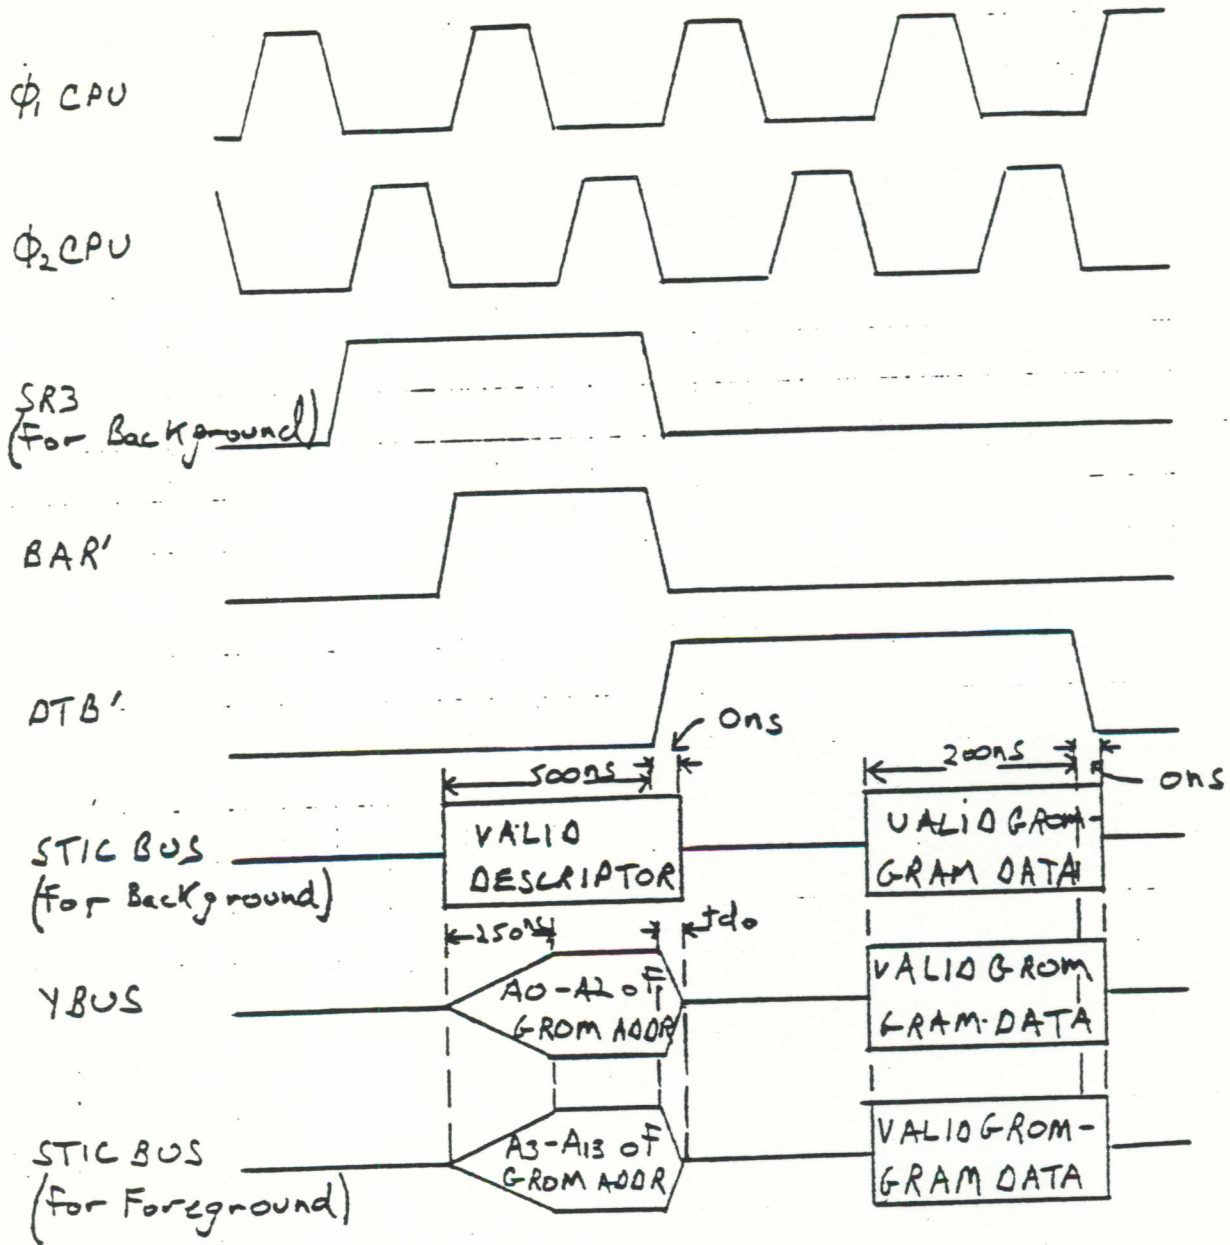 ϕ₁ CPU
ϕ₂ CPU
SR3
(For Background)
BAR'
DTB'
0ns
500ns
200ns
0ns
STIC BUS
(For Background)
VALID
DESCRIPTOR
VALID GROM-
GRAM DATA
250ns
tdo
YBUS
A0-A2 of
GROM ADDR
VALID GROM
GRAM-DATA
STIC BUS
(For Foreground)
A3-A13 of
GROM ADDR
VALID GROM-
GRAM DATA